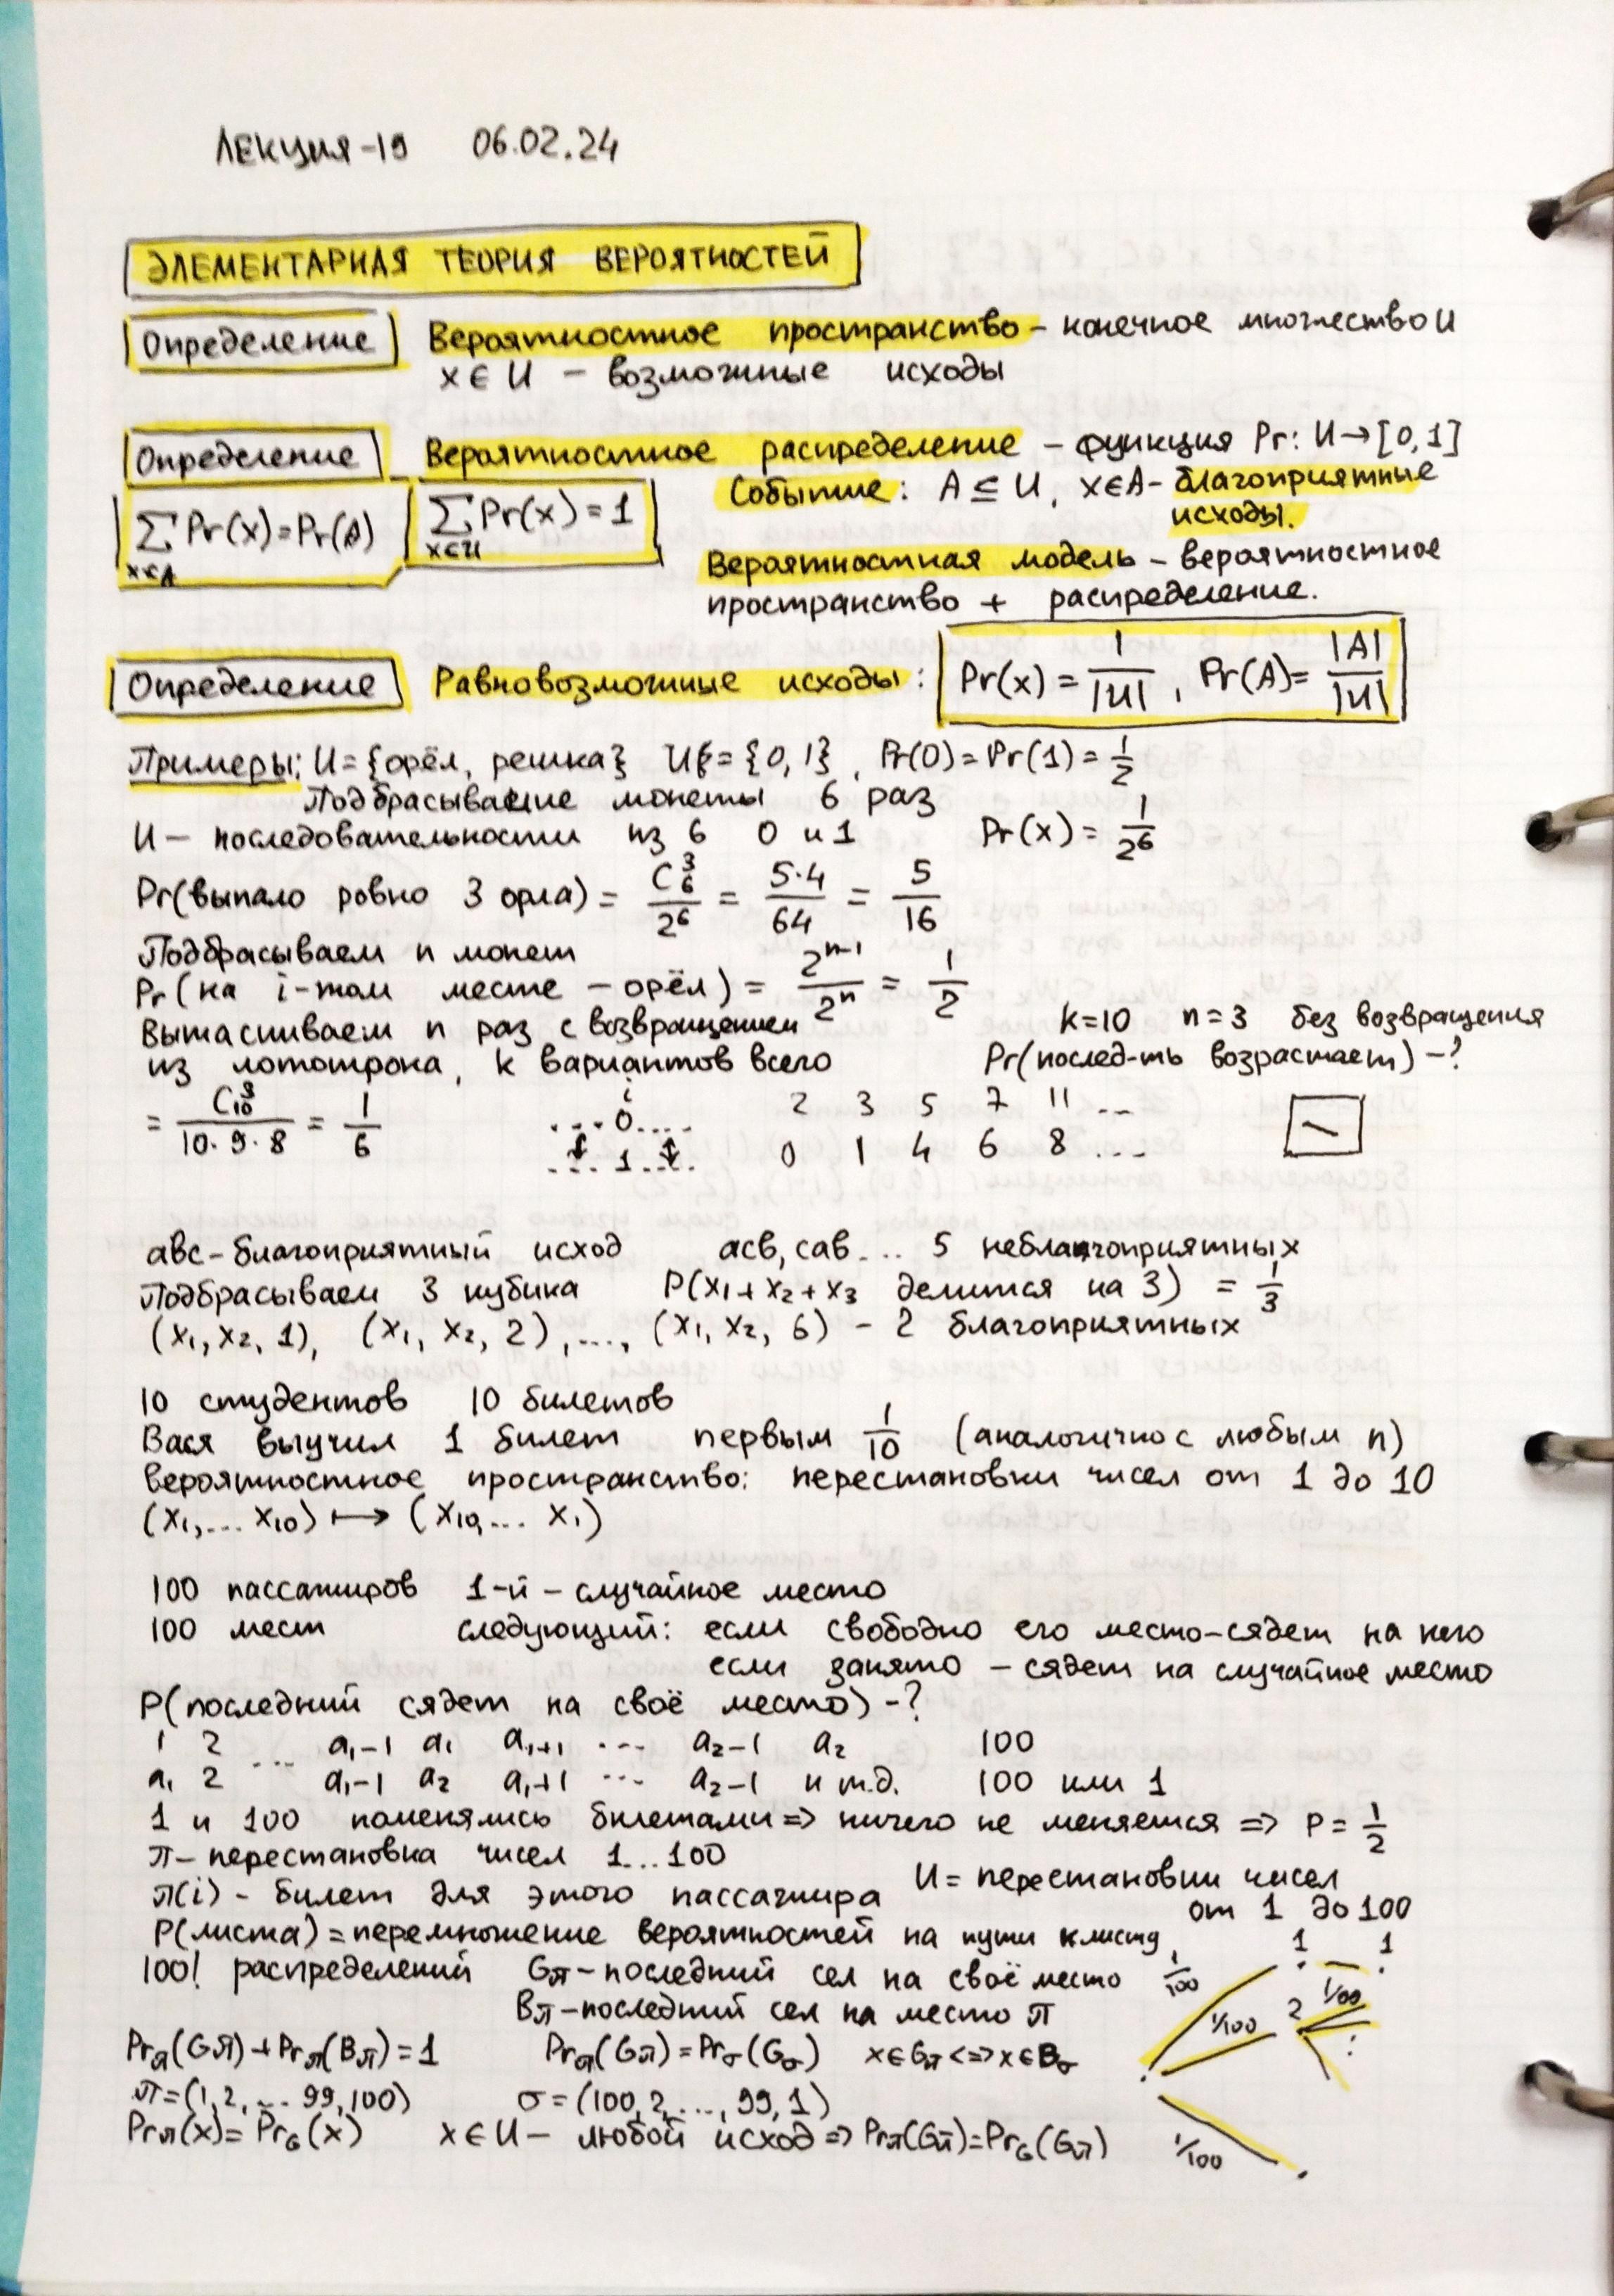 ЛЕКЦИЯ-19 06.02.24
ЭЛЕМЕНТАРНАЯ ТЕОРИЯ ВЕРОЯТНОСТЕЙ
Определение Вероятностное пространство - конечное множество U
x ∈ U – возможные исходы
Определение Вероятностное распределение – функция Pr: U → [0,1]
Событие: A ⊆ U, x∈A - благоприятные
исходы.
∑ Pr(x) = Pr(A) ∑ Pr(x) = 1
x∈A x∈U
Вероятностная модель – вероятностное
пространство + распределение.
Определение Равновозможные исходы: Pr(x) = 1/|U|, Pr(A) = |A|/|U|
Примеры: U = {орёл, решка} U = {0,1}, Pr(0) = Pr(1) = 1/2
Подбрасывание монеты 6 раз
U – последовательности из 6 0 и 1 Pr(x) = 1/2⁶
Pr(выпало ровно 3 орла) = C₆³/2⁶ = 5·4/64 = 5/16
Подбрасываем n монет
Pr(на i-том месте – орёл) = 2ⁿ⁻¹/2ⁿ = 1/2
Вытаскиваем n раз с возвращением k=10 n=3 без возвращения
из лототрона, k вариантов всего Pr(послед-ть возрастает) –?
= C₁₀³/10·9·8 = 1/6 i
...0.... 2 3 5 7 11 ...
... 1 .... 0 1 4 6 8 ...
авс – благоприятный исход асв, сав ... 5 неблагоприятных
Подбрасываем 3 кубика P(x₁+x₂+x₃ делится на 3) = 1/3
(x₁, x₂, 1), (x₁, x₂, 2), ..., (x₁, x₂, 6) – 2 благоприятных
10 студентов 10 билетов
Вася выучил 1 билет первым 1/10 (аналогично с любым n)
вероятностное пространство: перестановки чисел от 1 до 10
(x₁, ... x₁₀) ↦ (x₁₀, ... x₁)
100 пассажиров 1-й – случайное место
100 мест следующий: если свободно его место – сядет на него
если занято – сядет на случайное место
P(последний сядет на своё место) –?
1 2 ... a₁-1 a₁ a₁+1 ... a₂-1 a₂ 100
a₁ 2 a₁-1 a₂ a₁+1 ... a₂-1 и т.д. 100 или 1
1 и 100 поменялись билетами => ничего не меняется => P = 1/2
π – перестановка чисел 1...100
U = перестановки чисел
π(i) – билет для этого пассажира
от 1 до 100
P(листа) = перемножение вероятностей на пути к листу
1 1
100! распределений Gπ – последний сел на своё место 1/100
1/100
Bπ – последний сел на место π
1/100 2
Prπ(Gπ) + Prπ(Bπ) = 1 Prπ(Gπ) = Prσ(Gσ) x∈Gπ <=> x∈Bσ
π = (1,2, ... 99,100) σ = (100,2, ..., 99,1)
Prπ(x) = Prσ(x) x ∈ U – любой исход => Prπ(Gπ) = Prσ(Gπ)
1/100